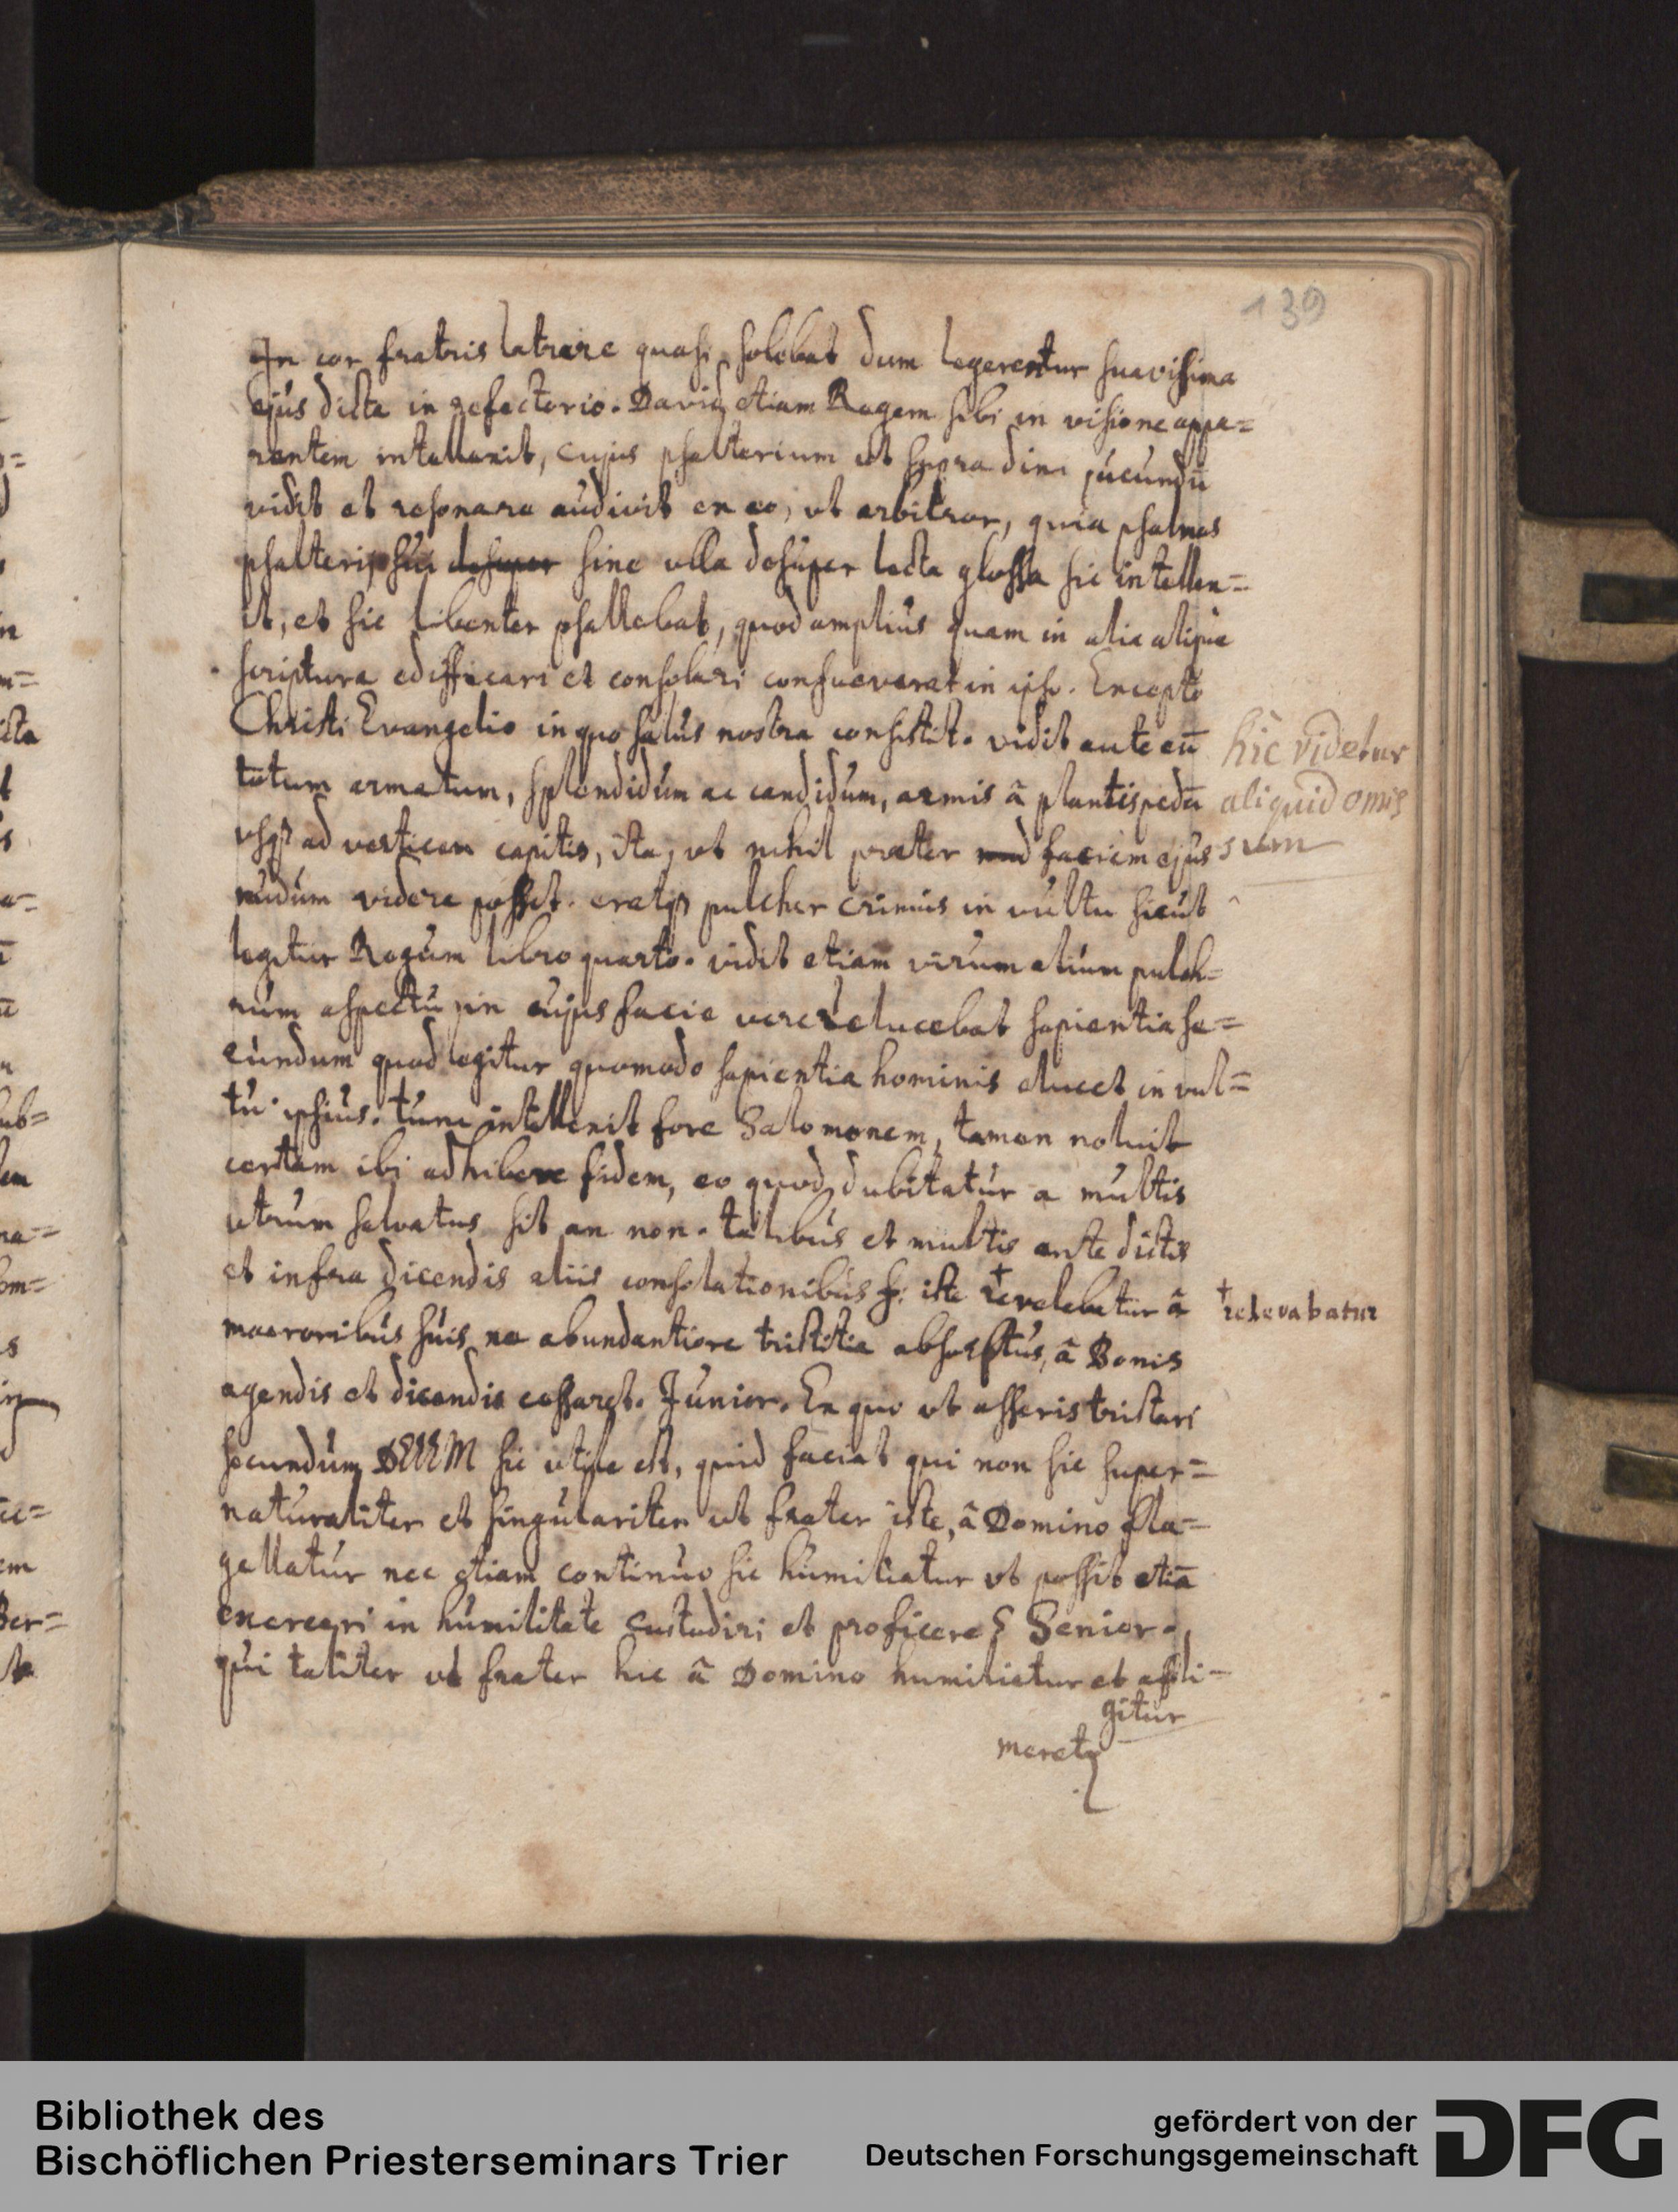 139
In cor fratris latrare quasi solebat dum legerentur suavissima
ejus dicta in refectorio. David etiam Regem sibi in visione appa=
rentem intellexit, cujus psalterium ut supra dixi jucundū
vidit et resonare audivit ex eo, ut arbitror, quia psalmos
psalterij sui desuper sine ulla desuper lecta glossa sic intellex=
it, et sic libenter psallebat, quod amplius quam in alia aliqua
scriptura edifficari et consolari consueverat in ipso. Excepto
Christi Evangelio in quo salus nostra consistit. vidit autē eū
totum armatum, splendidum ac candidum, armis â plantis pedū
usq3 ad verticem capitis, ita, ut nihil praeter nud faciem ejus
nudum videre posset. eratq3 pulcher eximius in vultu sicut
legitur Regum libro quarto. vidit etiam virum alium pulch=
rum aspectu in cujus facie vere elucebat sapientia se=
cundum quod legitur quomodo sapientia hominis elucet in vul=
tu ipsius. tunc intellexit fore Salomonem, tamen noluit
certam ibi adhibere fidem, eo quod dubitatur a multis
utrum salvatus sit an non. talibus et multis ante dictis
et infra dicendis aliis consolationibus fr: iste † revelebatur â
maeroribus suis ne abundantiore tristitia absorptus, â Bonis
agendis et dicendis cessaret. Junior. Ex quo ut asseris tristari
secundum DEUM sic utile est, quid faciat qui non sic super=
naturaliter et singulariter ut frater iste, â Domino fla=
gellatur nec etiam continuo sic humiliatur ut possit etiā
exerceri in humilitate custodiri et proficere? Senior.
qui taliter ut frater hic â Domino humilietur et affli=
gitur
meret
hic videtur
aliquid omis
sum
† relevabatur
Bibliothek des
Bischöflichen Priesterseminars Trier
gefördert von der
Deutschen Forschungsgemeinschaft
DFG